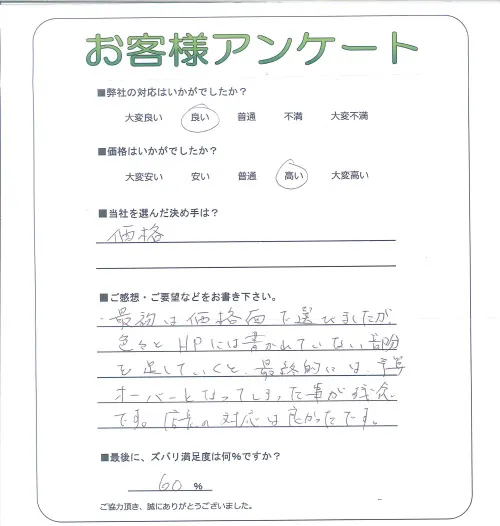 お客様アンケート
■弊社の対応はいかがでしたか?
大変良い 良い 普通 不満 大変不満
■価格はいかがでしたか?
大変安い 安い 普通 高い 大変高い
■当社を選んだ決め手は?
価格
■ご感想・ご要望などをお書き下さい。
・最初は価格面で選びましたが、
色々とHPには書かれていない部分
を足していくと、最終的には、予算
オーバーとなってしまった事が残念
です。店長の対応は良かったです。
■最後に、ズバリ満足度は何%ですか?
60 %
ご協力頂き、誠にありがとうございました。